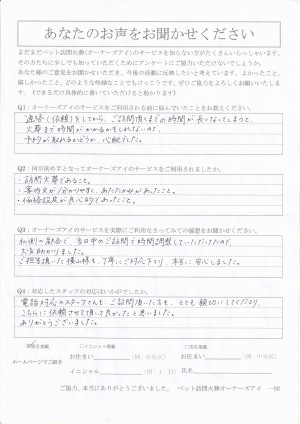 あなたのお声をお聞かせください
まだまだペット訪問火葬(オーナーズアイ)のサービスを知らない方がたくさんいらっしゃいます。
その方たちに少しでも知っていただくためにアンケートにご協力いただけないでしょうか。
あなた様のご意見をお聞かせいただき、今後の活動に反映したいと考えています。よかったこと、
嬉しかったこと、どのような些細なことでもけっこうです。ぜひご協力をよろしくお願いいたしま
す。(できるだけ具体的に書いていただけると助かります)
Q1：オーナーズアイのサービスをご利用される前に悩んでいたことをお教えください。
連絡(依頼)をしてから、ご訪問頂くまでの時間が長くなってしまうと、
火葬まで時間がかかるかもしれないので、
予約が取れるかどうか、心配でした。
Q2：何が決め手となってオーナーズアイのサービスをご利用されましたか。
・訪問火葬であること。
・案内文が分かりやすく、あたたかみがあったこと。
・価格設定が良心的であったこと。
Q3：オーナーズアイのサービスを実際にご利用なさってみての感想をお聞かせください。
私側の都合で、当日中のご訪問で時間調整していただけたので、
大変助かりました。
ご担当頂いた横山様も、丁寧にご対応下さり、本当に安心しました。
Q4：対応したスタッフの対応はいかがでしたか。
電話対応のスタッフさんも、ご訪問頂いた方も、とても親切にしてくださり、
こちらに依頼させて頂いて良かったと思いました。
ありがとうございました。
ホームページでご紹介
□イニシャル掲載
お住まい (例：中央区)
イニシャル (例：J．H)
□実名掲載
お住まい (例：中央区)
氏名
ご協力、本当にありがとうございました。 ペット訪問火葬オーナーズアイ 一同